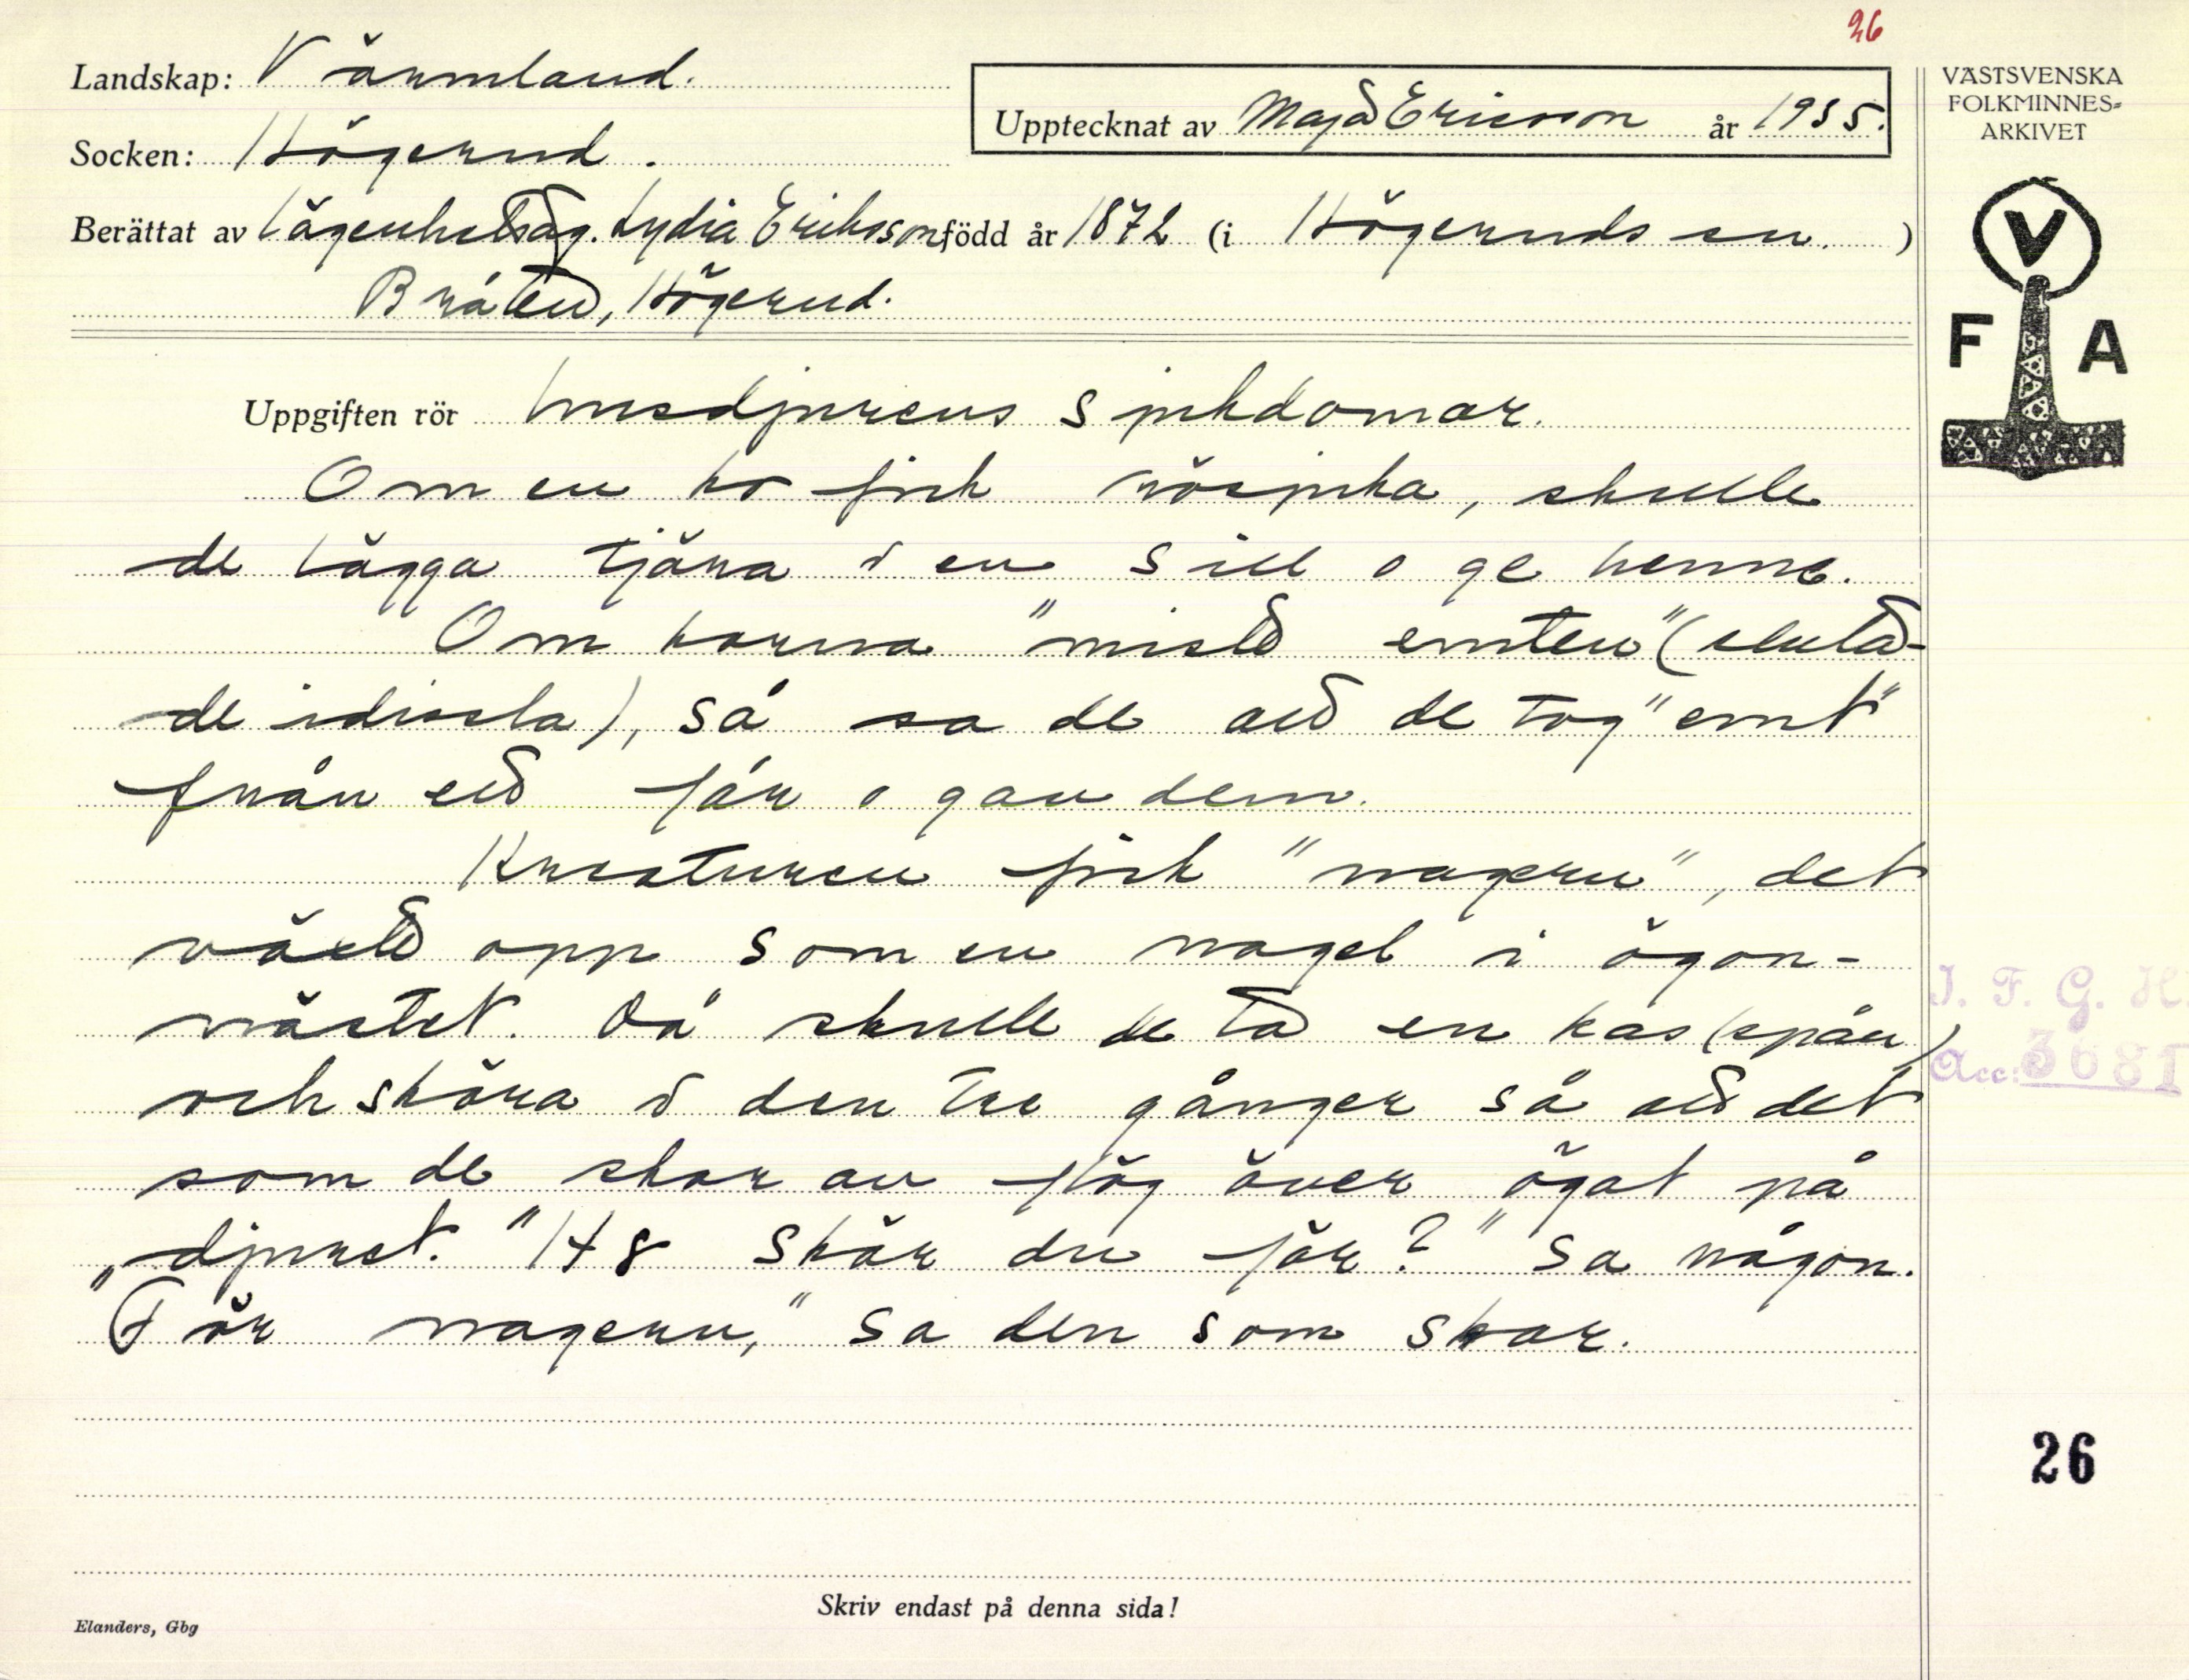 26
Landskap: Värmland.
Socken: Högerud.
Upptecknat av Maja Ericson år 1935.
VÄSTSVENSKA
FOLKMINNES-
ARKIVET
Berättat av Lägenhetsäg. Lydia Eriksson född år 1872 (i Högeruds sn. )
Bråten, Högerud.
V
F A
Uppgiften rör husdjurens sjukdomar.
Om en ko fick rösjuka, skulle
de lägga tjära i en sill o ge henne.
Om korna "mista emten" (sluta-
de idissla), så sa de att de tog "emt"
från ett får o gav dem.
Kreaturen fick "nagern", det
växte opp som en nagel i ögon-
nästet. Då skulle de ta en kas (spån)
och skära i den tre gånger så att det
som de skar av flög över ögat på
djuret. "Hå skär du för?" sa någon.
"För nagern," sa den som skar.
I. F. G. H.
Acc: 3681
26
Skriv endast på denna sida!
Elanders, Gbg